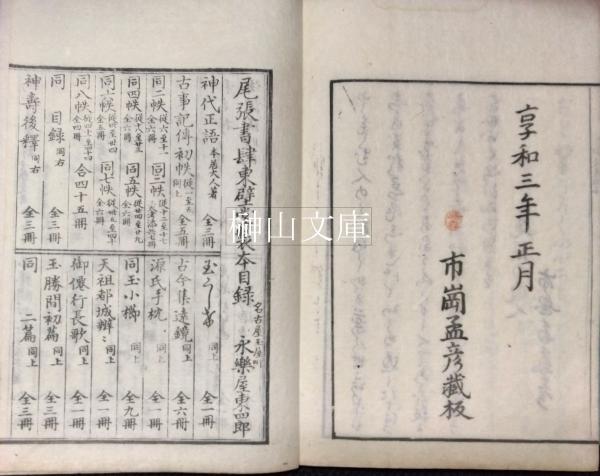 享和三年正月
市崗孟彦蔵板
尾張書肆東壁
製本目録
名古屋
永樂屋東四郎
神代正語 本居大人著 全三冊
古事記傳初帙 同上 全五冊
同二帙 全六冊 同三帙
同四帙 同五帙
同六帙 同七帙
同八帙 全四冊 合四十五冊
同 目録 同右 全三冊
神壽後釋 同右 全三冊
全一冊
古今集遠鏡 同上 全六冊
源氏手枕 同上 全一冊
同玉小櫛 同上 全九冊
天祖都城辨〻 同上 全一冊
御僊行長歌 同上 全一冊
玉勝間初篇 同上 全三冊
同 二篇 同上 全三冊
榊山文庫